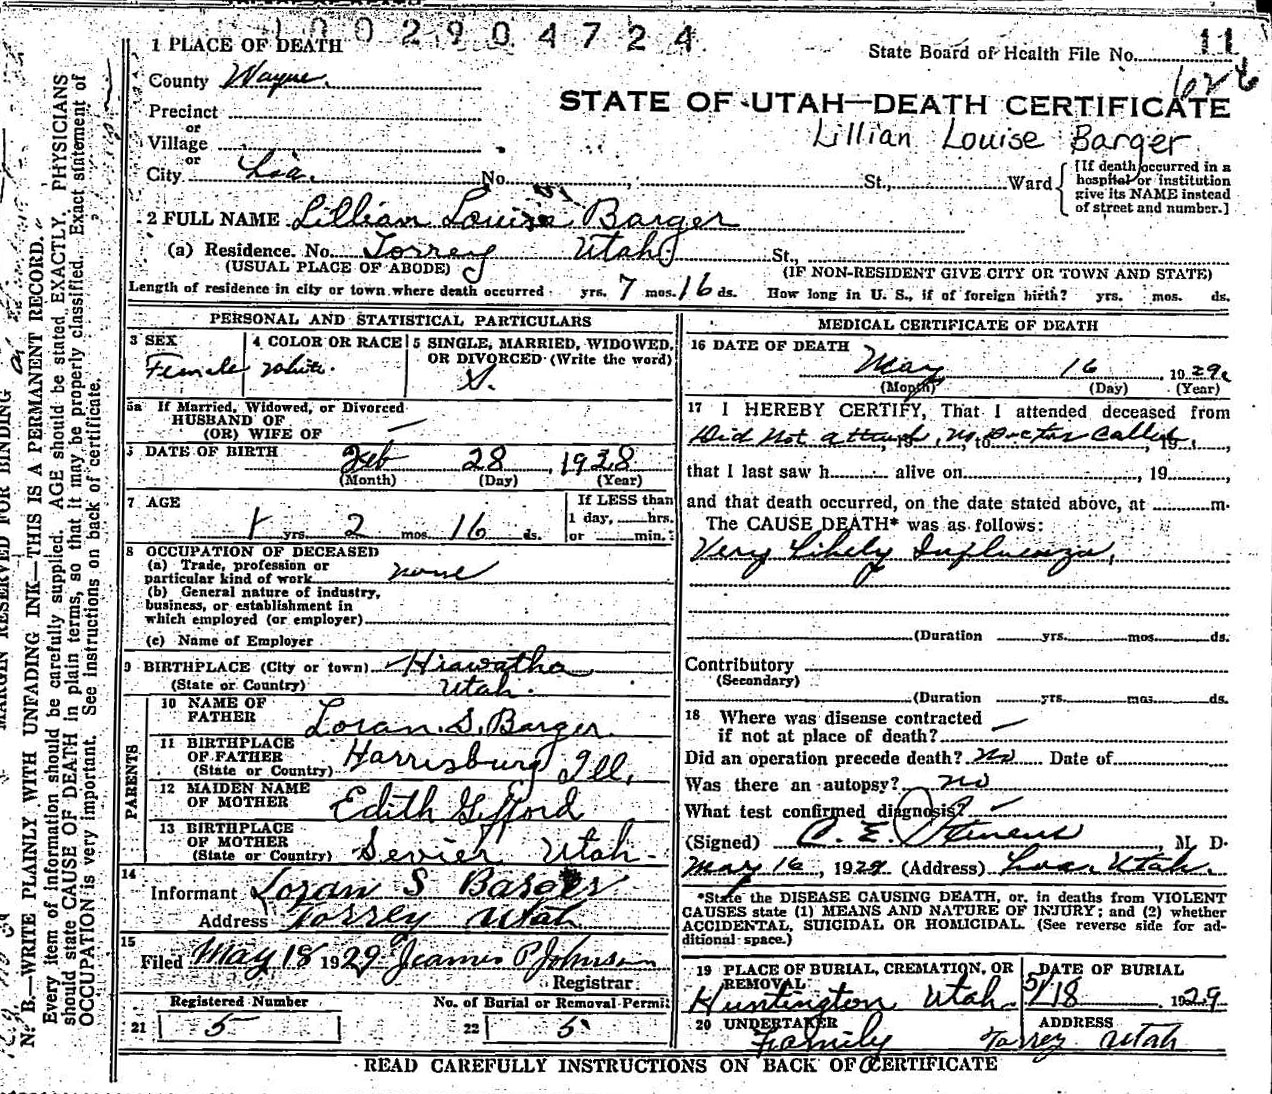 1002904724
1 PLACE OF DEATH
State Board of Health File No. 11
County Wayne.
626
STATE OF UTAH—DEATH CERTIFICATE
Precinct
Lillian Louise Barger
or
Village
or
City Loa. No. St., Ward
[If death occurred in a
hospital or institution
give its NAME instead
of street and number.]
2 FULL NAME Lillian Louise Barger
(a) Residence. No. Torrey Utah St.,
(USUAL PLACE OF ABODE) (IF NON-RESIDENT GIVE CITY OR TOWN AND STATE)
Length of residence in city or town where death occurred yrs. 7 mos. 16 ds. How long in U. S., if of foreign birth? yrs. mos. ds.
PERSONAL AND STATISTICAL PARTICULARS
3 SEX 4 COLOR OR RACE 5 SINGLE, MARRIED, WIDOWED,
OR DIVORCED (Write the word)
Female White. S.
5a If Married, Widowed, or Divorced
HUSBAND OF
(OR) WIFE OF —
DATE OF BIRTH
Feb 28, 1928
(Month) (Day) (Year)
7 AGE If LESS than
1 day, hrs.
1 yrs. 2 mos. 16 ds. or min.
8 OCCUPATION OF DECEASED
(a) Trade, profession or
particular kind of work none
(b) General nature of industry,
business, or establishment in
which employed (or employer)
(c) Name of Employer
9 BIRTHPLACE (City or town) Hiawatha
(State or Country) Utah.
PARENTS
10 NAME OF
FATHER Loran S. Barger
11 BIRTHPLACE
OF FATHER
(State or Country) Harrisburg Ill.
12 MAIDEN NAME
OF MOTHER Edith Gifford
13 BIRTHPLACE
OF MOTHER
(State or Country) Sevier Utah.
14
Informant Loran S Barger
Address Torrey Utah
15
Filed May 18 1929 P Johnson
Registrar
Registered Number No. of Burial or Removal Permit
21 5 22 5
MEDICAL CERTIFICATE OF DEATH
16 DATE OF DEATH
May 16, 1929
(Month) (Day) (Year)
17 I HEREBY CERTIFY, That I attended deceased from
Did Not attend, no Doctor Called, 19
that I last saw h alive on , 19 ,
and that death occurred, on the date stated above, at m.
The CAUSE DEATH* was as follows:
Very Likely Influenza,
(Duration yrs. mos. ds.
Contributory
(Secondary)
(Duration yrs. mos. ds.
18 Where was disease contracted
if not at place of death? —
Did an operation precede death? No Date of
Was there an autopsy? no
What test confirmed diagnosis? —
(Signed) C. E. , M. D.
May 16, 1929 (Address) Loa, Utah.
*State the DISEASE CAUSING DEATH, or, in deaths from VIOLENT
CAUSES state (1) MEANS AND NATURE OF INJURY; and (2) whether
ACCIDENTAL, SUICIDAL OR HOMICIDAL. (See reverse side for ad-
ditional space.)
19 PLACE OF BURIAL, CREMATION, OR
REMOVAL
DATE OF BURIAL
Huntington Utah. 5/18 1929
20 UNDERTAKER ADDRESS
Family Torrey Utah
READ CAREFULLY INSTRUCTIONS ON BACK OF CERTIFICATE
MARGIN RESERVED FOR BINDING
N. B.—WRITE PLAINLY WITH UNFADING INK—THIS IS A PERMANENT RECORD.
Every item of information should be carefully supplied. AGE should be stated EXACTLY. PHYSICIANS
should state CAUSE OF DEATH in plain terms, so that it may be properly classified. Exact statement of
OCCUPATION is very important. See instructions on back of certificate.